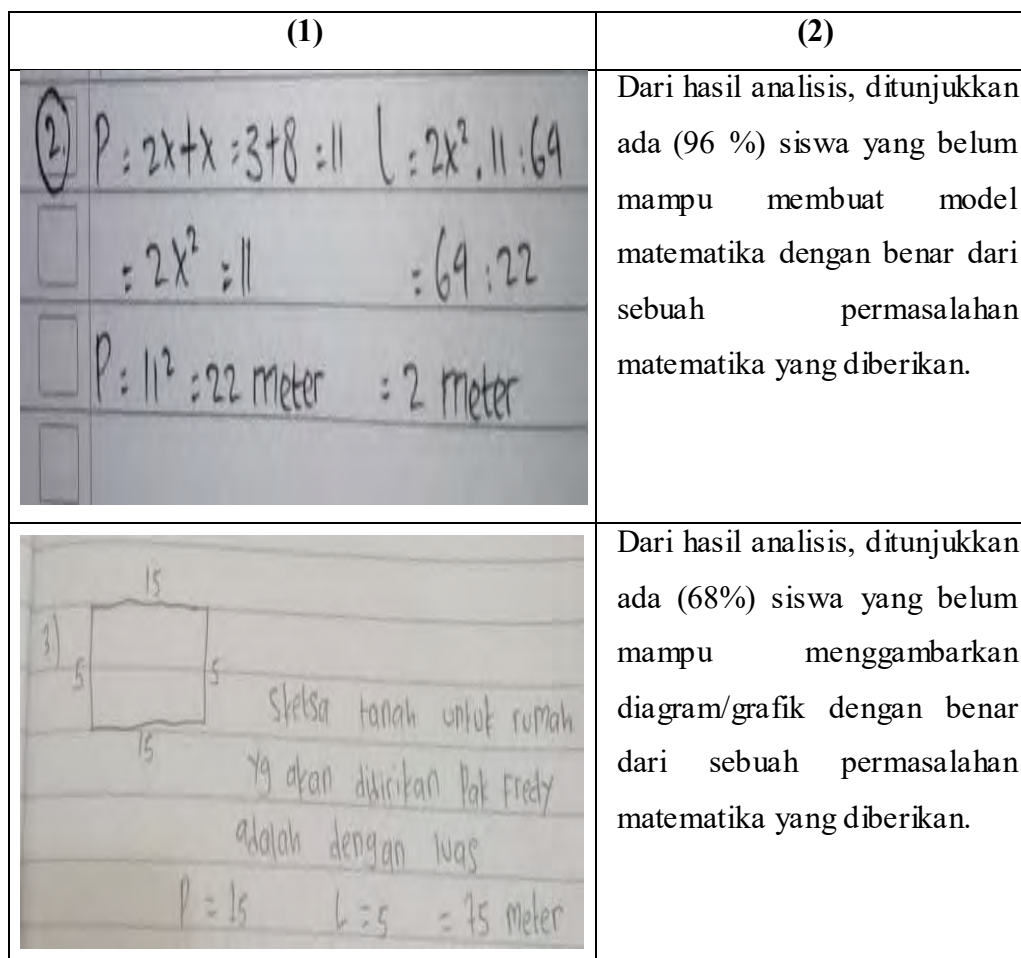 (1)
(2)
2. P = 2x+x = 3+8 = 11 l = 2x². 11 : 69
= 2x² = 11 = 69 : 22
P = 11² = 22 meter = 2 meter
Dari hasil analisis, ditunjukkan
ada (96 %) siswa yang belum
mampu membuat model
matematika dengan benar dari
sebuah permasalahan
matematika yang diberikan.
15
3)
5 5
15
Sketsa tanah untuk rumah
yg akan didirikan Pak Fredy
adalah dengan luas
P = 15 L = 5 = 75 meter
Dari hasil analisis, ditunjukkan
ada (68%) siswa yang belum
mampu menggambarkan
diagram/grafik dengan benar
dari sebuah permasalahan
matematika yang diberikan.